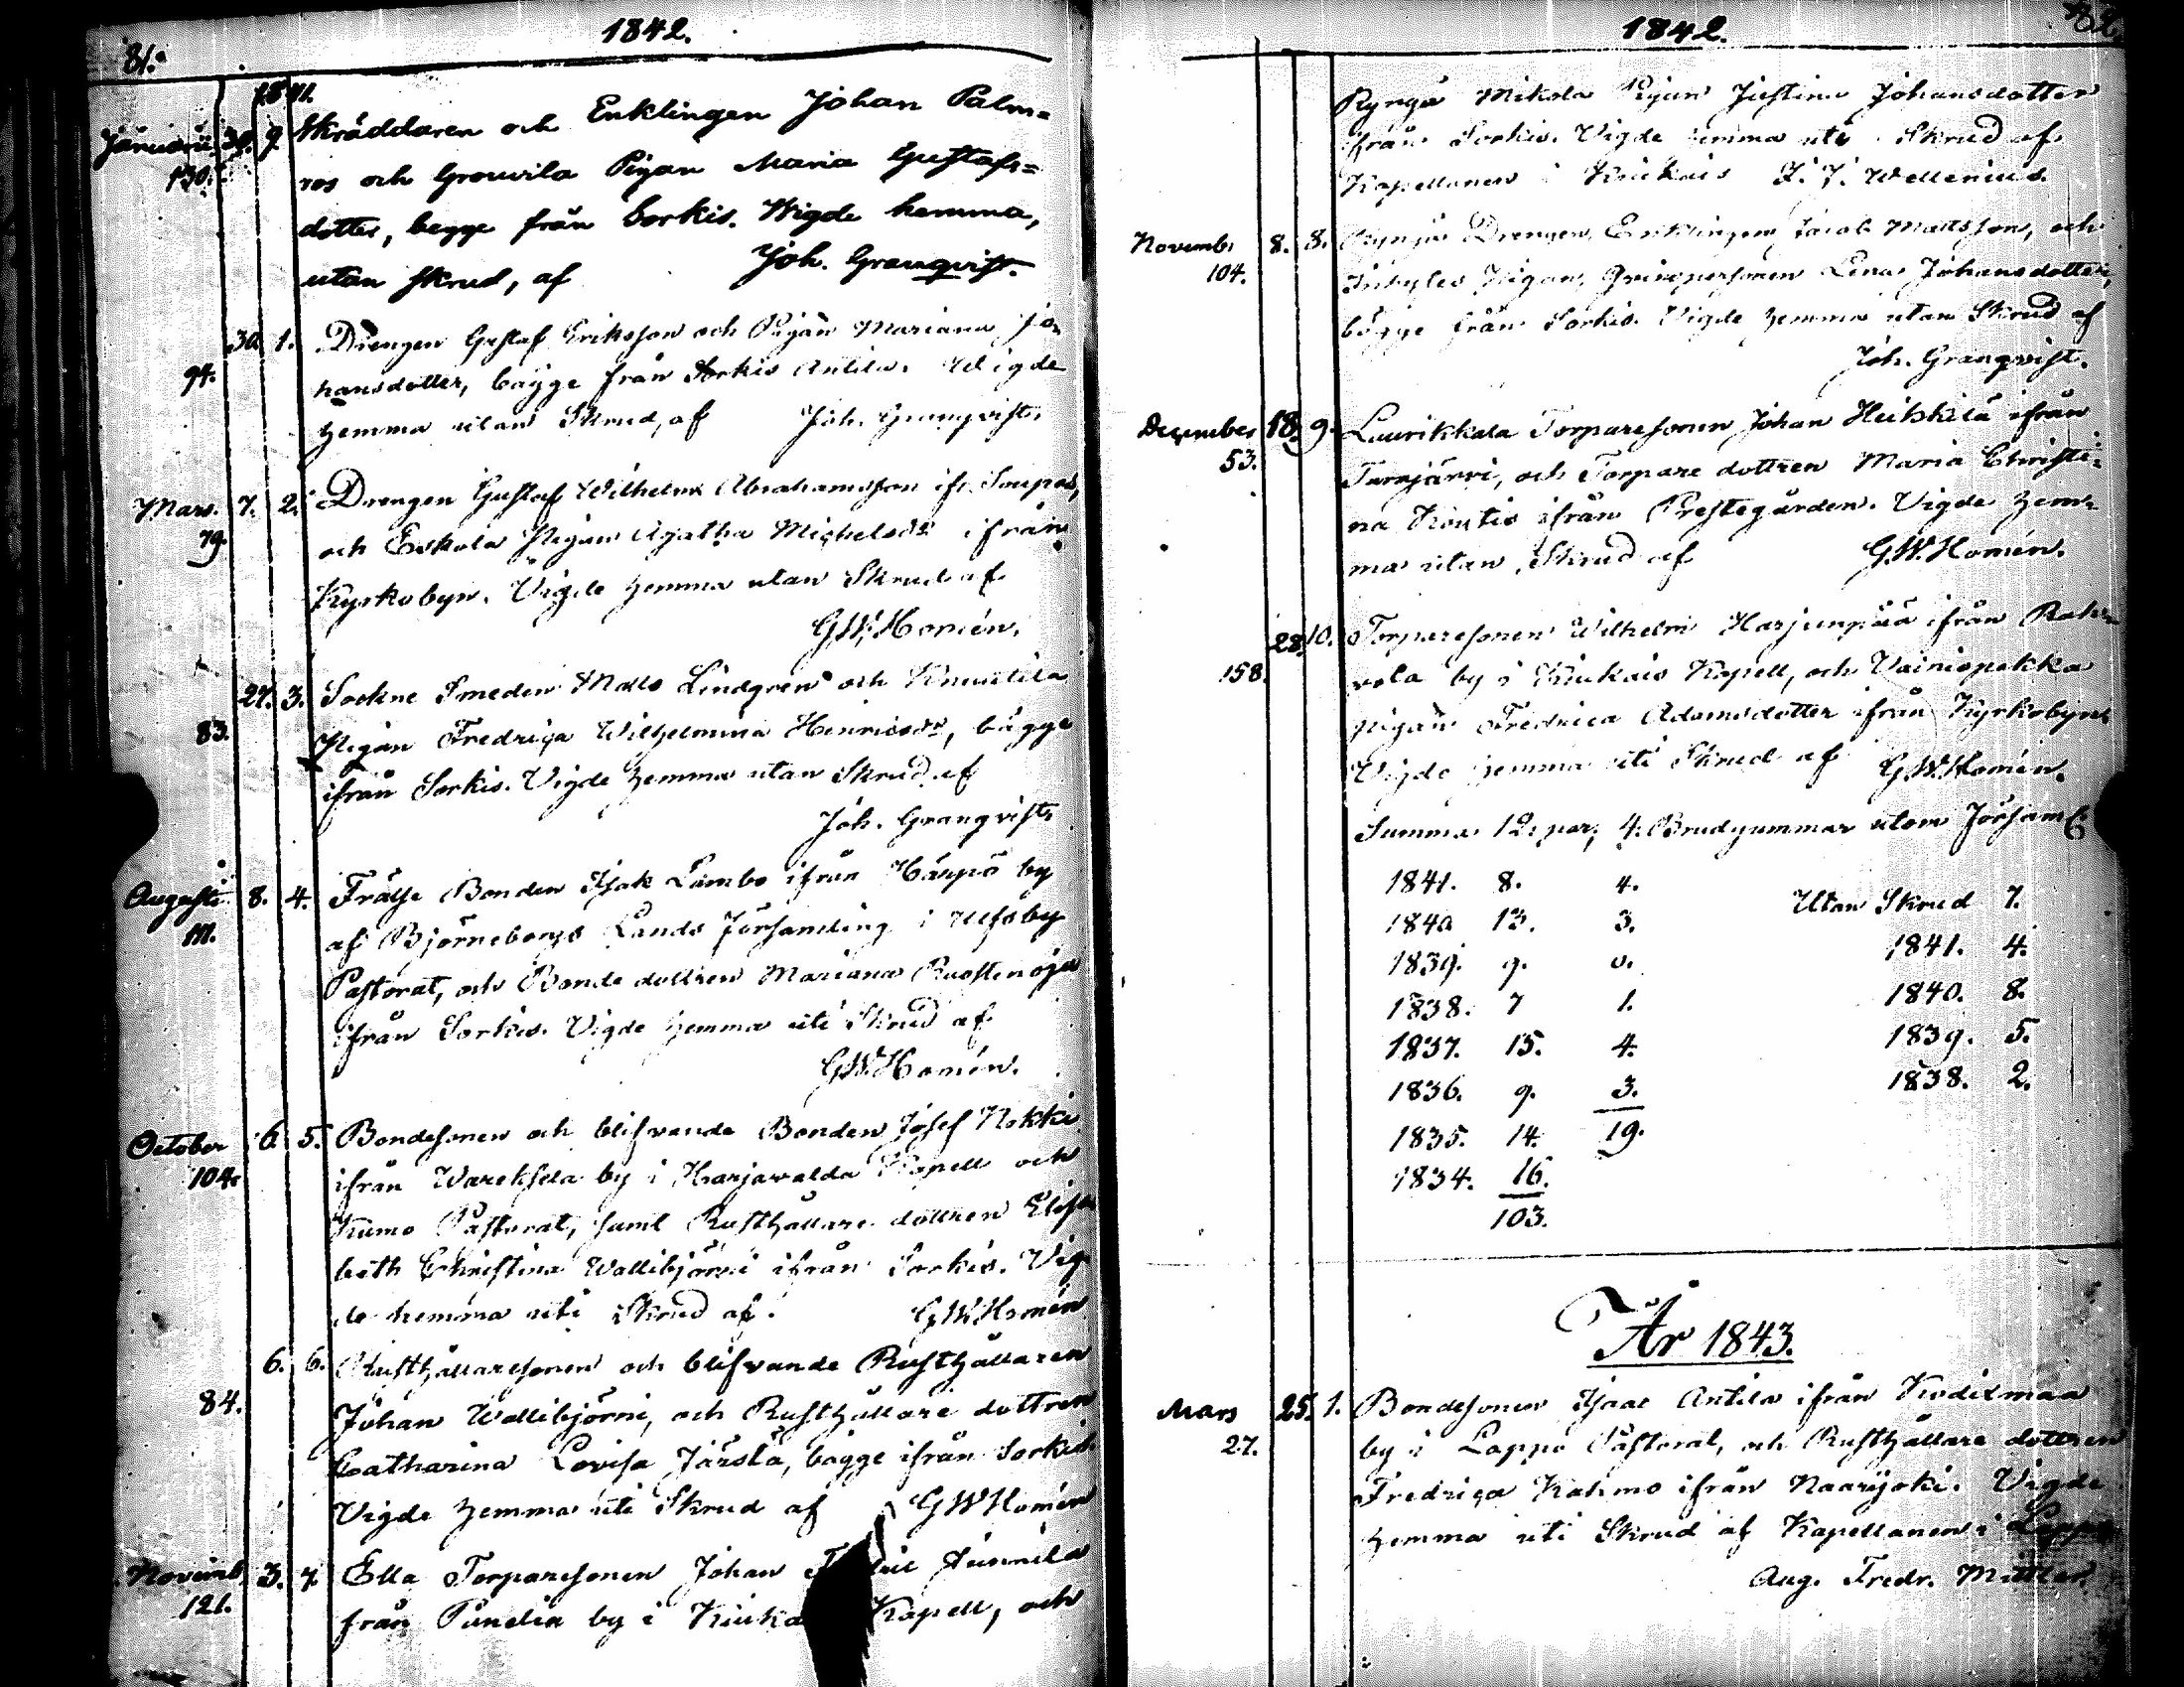 81.
1842.
1841.
Januarii 30. 9. Skräddaren och Enklingen Johan Palm=
130. ros och Grouvila Pigan Maria Gustafs=
dotter, begge från Sorkis. Wigde hemma,
utan skrud, af Joh. Granqvist.
30. 1. Drengen Gustaf Eriksson och Pigan Mariana Jo
94. hansdotter, bägge från Sorkis Antila. Wigde
hemma utan Skrud, af Joh. Granqvist.
Mars. 7. 2. Drengen Gustaf Wilhelm Abrahamsson ifr.
79. och Eskola Pigan Agatha Michelsdr ifrån
Kyrkobyn. Vigde hemma utan Skrud af
G.W. Homén.
27. 3. Sockne Smeden Matts Lindgren och Knuutila
83. Pigan Fredrica Wilhelmina Henricsdr, bägge
ifrån Sorkis. Vigde hemma utan Skrud af
Joh. Granqvist.
Augusti 8. 4. Frälse Bonden Isak Lambo ifrån Härpö by
111. af Björneborgs Lands Församling i Ulfsby
Pastorat, och Bonde dottren Mariana Ruostenoja
ifrån Sorkis. Vigde hemma uti Skrud af
G.W. Homén.
October 6. 5. Bondesonen och blifvande Bonden Josef Nokki
104. ifrån by i Harjavalda Kapell och
Kumo Pastorat, samt Rusthållare dottren Elisa
beth Christina Wallibjörni ifrån Sorkis. Vig
de hemma uti Skrud af. G.W. Homén
6. 6. Rusthållaresonen och blifvande Rusthållaren
84. Johan Wallibjörni, och Rusthållare dottren
Catharina Lovisa Järsta, bägge ifrån Sorkis
Vigde hemma uti Skrud af G W Homén
Novemb. 3. 7. Ella Torparesonen Johan
121. från Panelia by i Kiuka Kapell, och
1842.
Rynga Mikola Pigan Justina Johansdotter
ifrån Sorkis. Vigde hemma uti Skrud af
Kapellanen i Kiukais Wellenius.
Novembr 8. 8. Drengen, Enklingen Jacob Mattsson, och
104. Inhyses Pigan, Lena Johansdotter,
bägge från Sorkis. Vigde hemma utan Skrud af
Joh. Granqvist.
December 18. 9. Laurikkala Torparesonen Johan Heikkilä ifrån
53. Turajärvi, och Torpare dottren Maria Christi=
na Koutis ifrån Prestegården. Vigde hem=
ma utan Skrud af G.W. Homén.
28. 10. Torparesonen Wilhelm Harjunpää ifrån
158. vola by i Kiukais Kapell, och Vainiopekka
pigan Fredrica Adamsdotter ifrån Kyrkobyn.
Vigde hemma uti Skrud af G.W. Homén.
Summa 12. par, 4. Brudgummar utom Församl
1841. 8. 4.
1840. 13. 3. Utan Skrud 7.
1839. 9. 0. 1841. 4.
1838. 7 1. 1840. 8.
1837. 15. 4. 1839. 5.
1836. 9. 3. 1838. 2.
1835. 14. 19.
1834. 16.
103.
År 1843.
Mars 25. 1. Bondesonen Isaac Antila ifrån Kodixmaa
27. by i Lappo Pastorat, och Rusthållare dottren
Fredrica Kahmo ifrån Naarijoki. Vigde
hemma uti Skrud af Kapellanen i Lappo
Aug. Fredr. Mittler